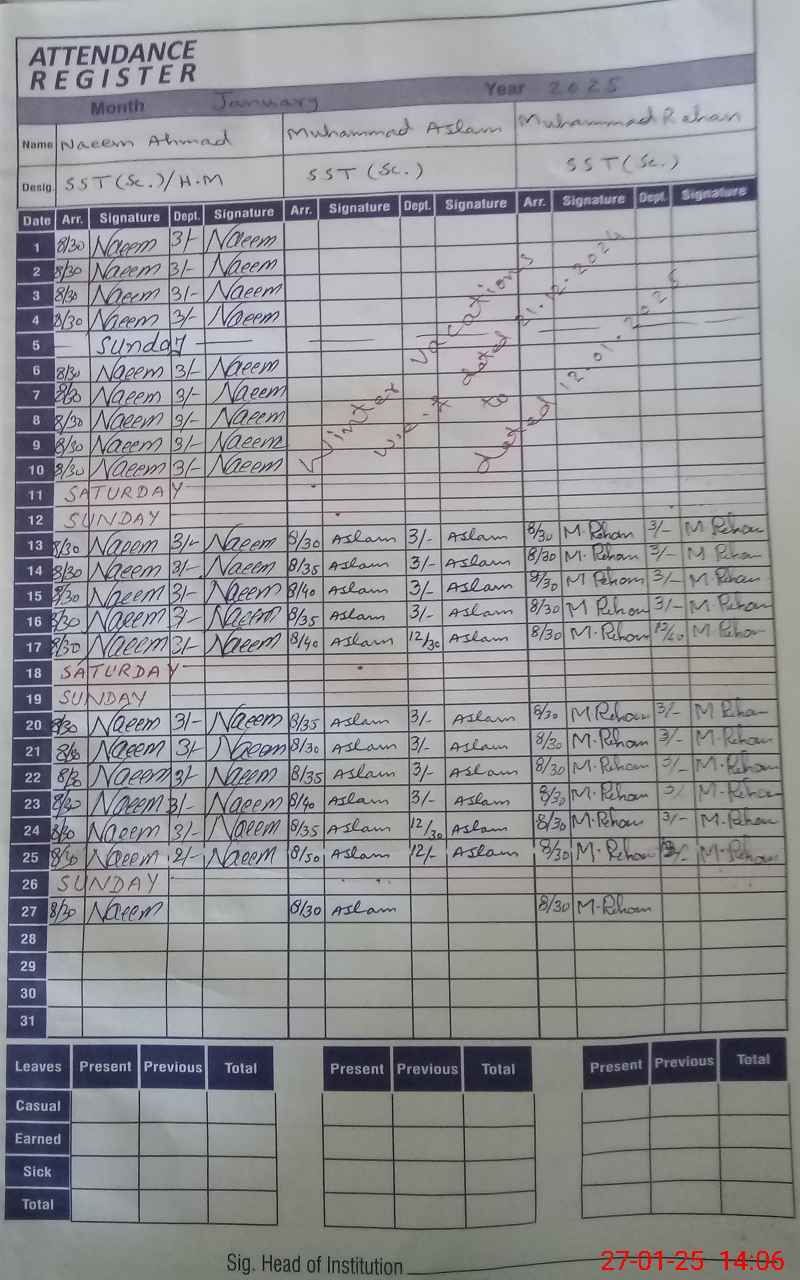 ATTENDANCE
REGISTER
Month January Year 2025
Name Naeem Ahmad Muhammad Aslam Muhammad Rehan
Desig. SST (Sc.)/H.M SST (Sc.) SST (Sc.)
Date Arr. Signature Dept. Signature Arr. Signature Dept. Signature Arr. Signature Dept. Signature
1 8/30 Naeem 3/- Naeem
2 8/30 Naeem 3/- Naeem
3 8/30 Naeem 3/- Naeem
4 8/30 Naeem 3/- Naeem
5 Sunday
6 8/30 Naeem 3/- Naeem
7 8/30 Naeem 3/- Naeem
8 8/30 Naeem 3/- Naeem
9 8/30 Naeem 3/- Naeem
10 8/30 Naeem 3/- Naeem
Winter Vacations
w.e.f dated 21.12.2024
to
dated 12.01.2025
11 SATURDAY
12 SUNDAY
13 8/30 Naeem 3/- Naeem 8/30 Aslam 3/- Aslam 8/30 M.Rehan 3/- M Rehan
14 8/30 Naeem 3/- Naeem 8/35 Aslam 3/- Aslam 8/30 M.Rehan 3/- M.Rehan
15 8/30 Naeem 3/- Naeem 8/40 Aslam 3/- Aslam 8/30 M Rehan 3/- M Rehan
16 8/30 Naeem 3/- Naeem 8/35 Aslam 3/- Aslam 8/30 M Rehan 3/- M.Rehan
17 8/30 Naeem 3/- Naeem 8/40 Aslam 12/30 Aslam 8/30 M.Rehan 12/40 M.Rehan
18 SATURDAY
19 SUNDAY
20 8/30 Naeem 3/- Naeem 8/35 Aslam 3/- Aslam 8/30 M Rehan 3/- M Rehan
21 8/30 Naeem 3/- Naeem 8/30 Aslam 3/- Aslam 8/30 M.Rehan 3/- M.Rehan
22 8/30 Naeem 3/- Naeem 8/35 Aslam 3/- Aslam 8/30 M.Rehan 3/- M.Rehan
23 8/30 Naeem 3/- Naeem 8/40 Aslam 3/- Aslam 8/30 M.Rehan 3/ M.Rehan
24 8/30 Naeem 3/- Naeem 8/35 Aslam 12/30 Aslam 8/30 M.Rehan 3/- M.Rehan
25 8/30 Naeem 2/- Naeem 8/50 Aslam 12/- Aslam 8/30 M.Rehan M.Rehan
26 SUNDAY
27 8/30 Naeem 8/30 Aslam 8/30 M.Rehan
28
29
30
31
Leaves Present Previous Total Present Previous Total Present Previous Total
Casual
Earned
Sick
Total
Sig. Head of Institution
27-01-25 14:06